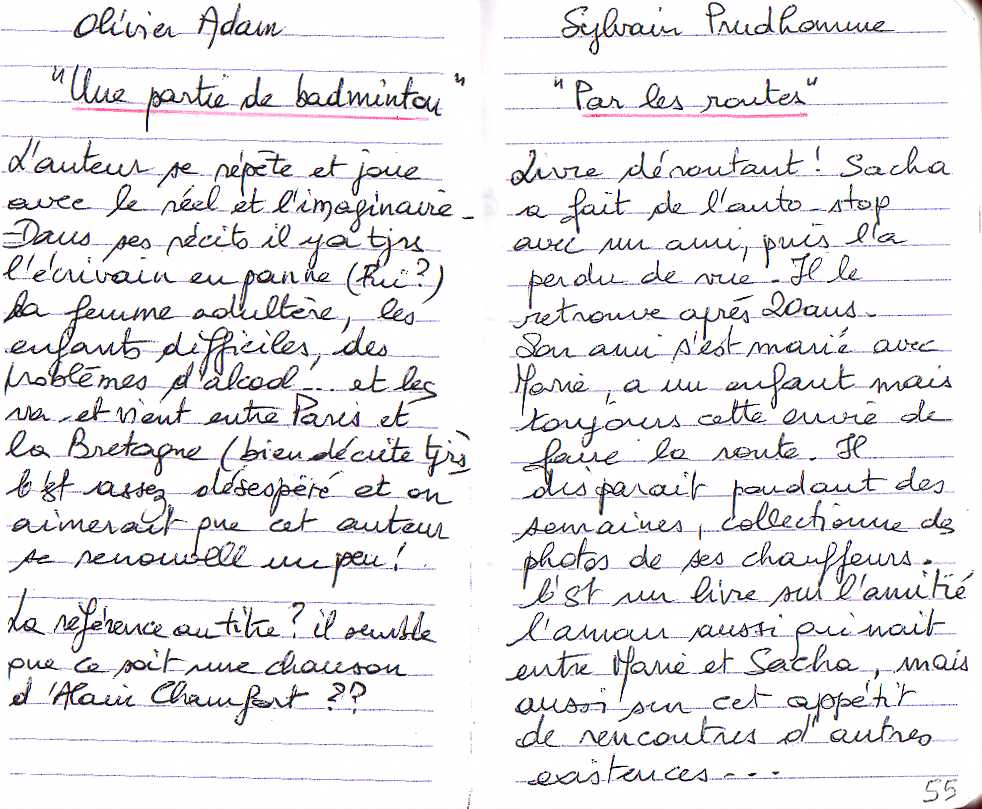 Olivier Adam
"Une partie de badminton"
L'auteur se répète et joue
avec le réel et l'imaginaire -
Dans ses récits il y a tjrs
l'écrivain en panne (lui ?)
la femme adultère, les
enfants difficiles, des
problèmes d'alcool ... et les
va-et-vient entre Paris et
la Bretagne (bien décrite tjrs)
C'est assez désespéré et on
aimerait que cet auteur
se renouvelle un peu !
La référence au titre ? il semble
que ce soit une chanson
d'Alain Chamfort ??
Sylvain Prudhomme
"Par les routes"
Livre déroutant ! Sacha
a fait de l'auto-stop
avec un ami, puis l'a
perdu de vue - Il le
retrouve après 20 ans -
Son ami s'est marié avec
Marie, a un enfant mais
toujours cette envie de
faire la route. Il
disparait pendant des
semaines, collectionne des
photos de ses chauffeurs.
C'est un livre sur l'amitié
l'amour aussi qui nait
entre Marie et Sacha, mais
aussi sur cet appétit
de rencontres d'autres
existences ---
55